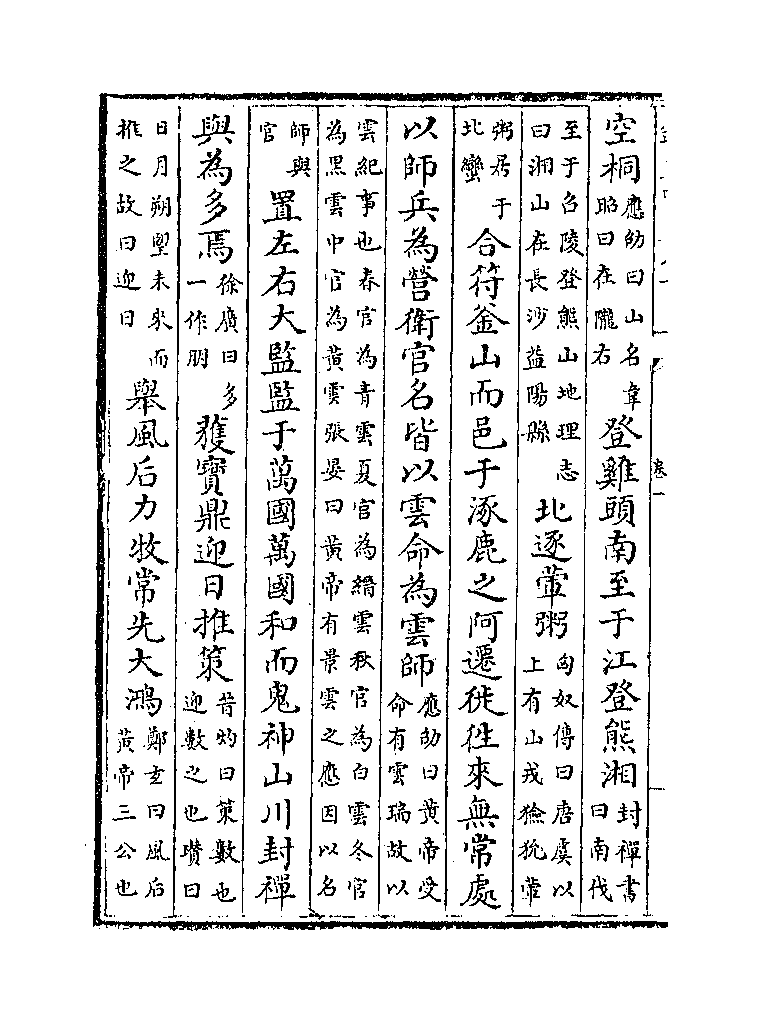 空桐應劭曰山名韋昭曰在隴右登雞頭南至于江登熊湘封禪書曰南伐
至于召陵登熊山地理志曰湘山在長沙益陽縣北逐葷粥匈奴傳曰唐虞以上有山戎獫狁葷
粥居于北蠻合符釜山而邑于涿鹿之阿遷徙徃來無常處
以師兵為營衛官名皆以雲命為雲師應劭曰黃帝受命有雲瑞故以
雲紀事也春官為青雲夏官為縉雲秋官為白雲冬官為黑雲中官為黃雲張晏曰黃帝有景雲之應因以名
師與官置左右大監監于萬國萬國和而鬼神山川封禪
與為多焉徐廣曰多一作朋獲寶鼎迎日推策晉灼曰策數也迎數之也瓚曰
日月朔望未來而推之故曰迎日舉風后力牧常先大鴻鄭玄曰風后黃帝三公也
卷一